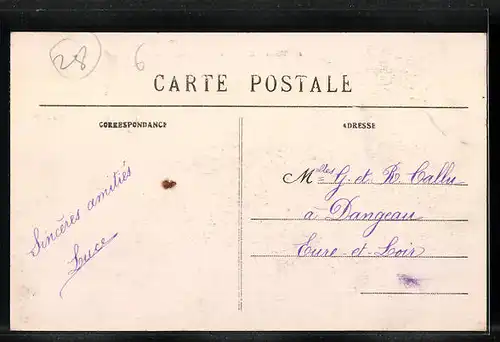 28
6
CARTE POSTALE
CORRESPONDANCE
ADRESSE
Sincères amitiés
Luce
Mlles G. et R. Callu
à Dangeau
Eure-et-Loir